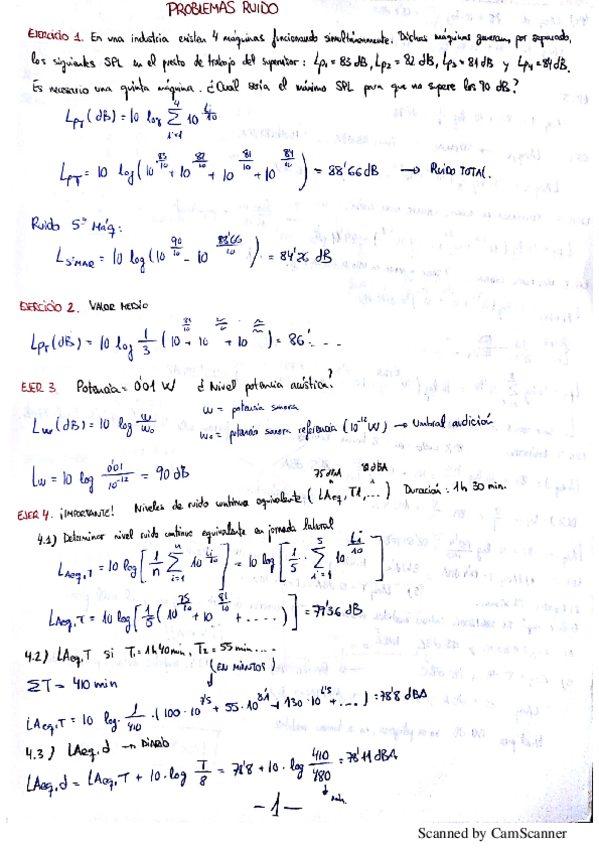 PROBLEMAS RUIDO
EJERCICIO 1. En una industria existen 4 máquinas funcionando simultáneamente. Dichas máquinas generan, por separado,
los siguientes SPL en el puesto de trabajo del supervisor: Lp1 = 83 dB, Lp2 = 82 dB, Lp3 = 81 dB y Lp4 = 84 dB.
Es necesario una quinta máquina. ¿Cuál sería el máximo SPL para que no supere los 90 dB?
LpT (dB) = 10 log Σ i=1 4 10^(Li/10)
LpT = 10 log (10^(83/10) + 10^(82/10) + 10^(81/10) + 10^(84/10)) = 88'66 dB → RUIDO TOTAL.
Ruido 5ª Máq:
L5ªMAQ = 10 log (10^(90/10) - 10^(88'66/10)) = 84'26 dB
EJERCICIO 2. VALOR MEDIO
LpT (dB) = 10 log 1/3 (10 + 10 + 10) = 86'...
EJER 3. Potencia = 0'01 W ¿Nivel potencia acústica?
Lw (dB) = 10 log w/w0 w = potencia sonora
w0 = potencia sonora referencia (10^-12 W) → Umbral audición
Lw = 10 log 0'01/10^-12 = 90 dB
75 dBA
EJER 4. ¡IMPORTANTE! Niveles de ruido continuo equivalente (LAeq, T1, ...) Duración: 1h 30 min.
4.1) Determinar nivel ruido continuo equivalente en jornada laboral
LAeq,T = 10 log [1/n Σ i=1 n 10^(Li/10)] = 10 log [1/5 · Σ i=1 5 10^(Li/10)]
LAeq,T = 10 log [1/5 (10^(75/10) + 10^(81/10) + ....)] = 79'36 dB
4.2) LAeq,T si T1 = 1h 40 min, T2 = 55 min ....
(EN MINUTOS)
ΣT = 410 min
LAeq,T = 10 log · 1/410 · (100 · 10^7'5 + 55 · 10^8'1 + 130 · 10 + ...) = 78'8 dBA
4.3) LAeq,d → DIARIO
LAeq,d = LAeq,T + 10 · log T/8 = 78'8 + 10 · log 410/480 = 78'11 dBA
min.
-1-
Scanned by CamScanner